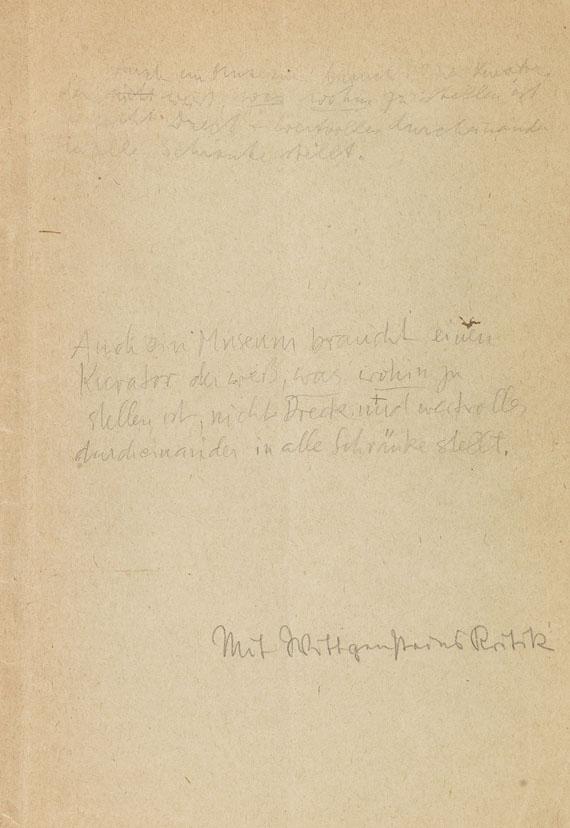 Auch ein Museum braucht einen Kurator
der weiß, was wohin zu stellen ist
nicht Dreck + wertvolles durcheinander
in alle Schränke stellt.
Auch ein Museum braucht einen
Kurator der weiß, was wohin zu
stellen ist, nicht Dreck und wertvolles
durcheinander in alle Schränke stellt.
Mit Wittgensteins Kritik